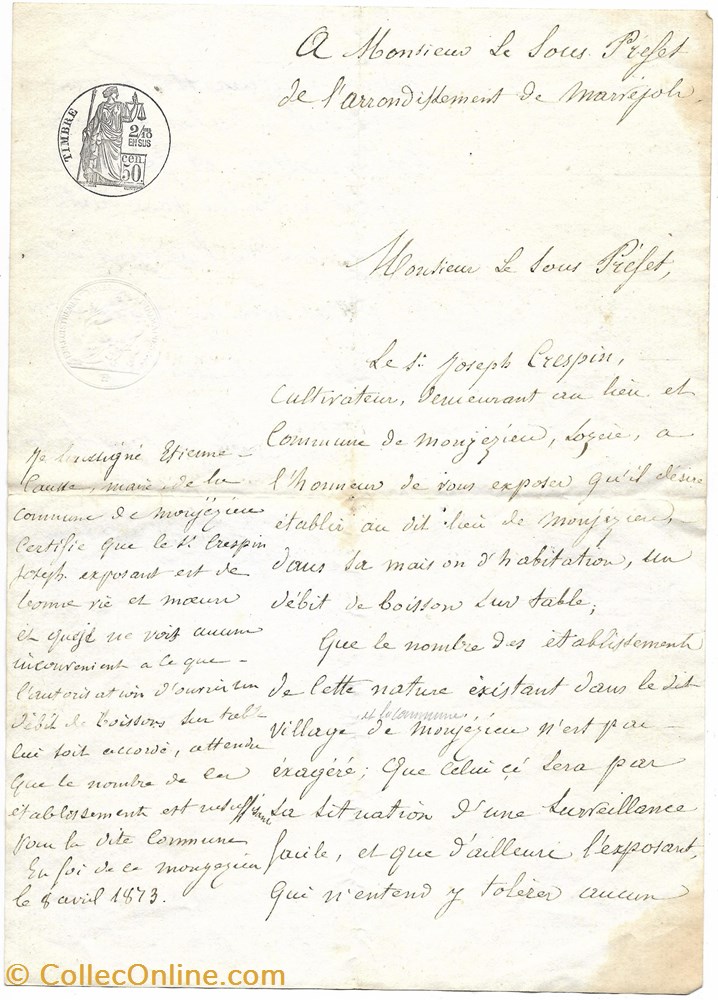 A Monsieur Le Sous Préfet
de l'arrondissement de Marvejols
TIMBRE
2/10
EN SUS
cen
50.
Monsieur Le Sous Préfet,
Le Sr Joseph Crespin,
Cultivateur, demeurant au lieu et
Commune de Monjézieu, Lozère, a
l'honneur de vous exposer qu'il désire
établir au dit lieu de Monjézieu,
dans sa maison d'habitation, un
débit de boisson sur table;
Que le nombre des établissements
de cette nature existant dans le dit
et la commune
Village de Monjézieu n'est pas
éxagéré; Que celui çi sera par
sa situation d'une surveillance
facile, et que d'ailleurs l'exposant,
qui n'entend y tolérer aucun
Je soussigné Etienne
Causse, maire de la
commune de Monjézieu
Certifie que le Sr Crespin
Joseph exposant est de
bonne vie et mœurs
et qu'eje ne voit aucun
inconvenient a ce que
l'autorisation d'ouvrir un
débit de boissons sur table
lui soit accordé, attendu
que le nombre de ces
établissements est insuffisant
pour la dite Commune
En foi de ce Monjezieu
le 8 avril 1873.
© CollecOnline.com